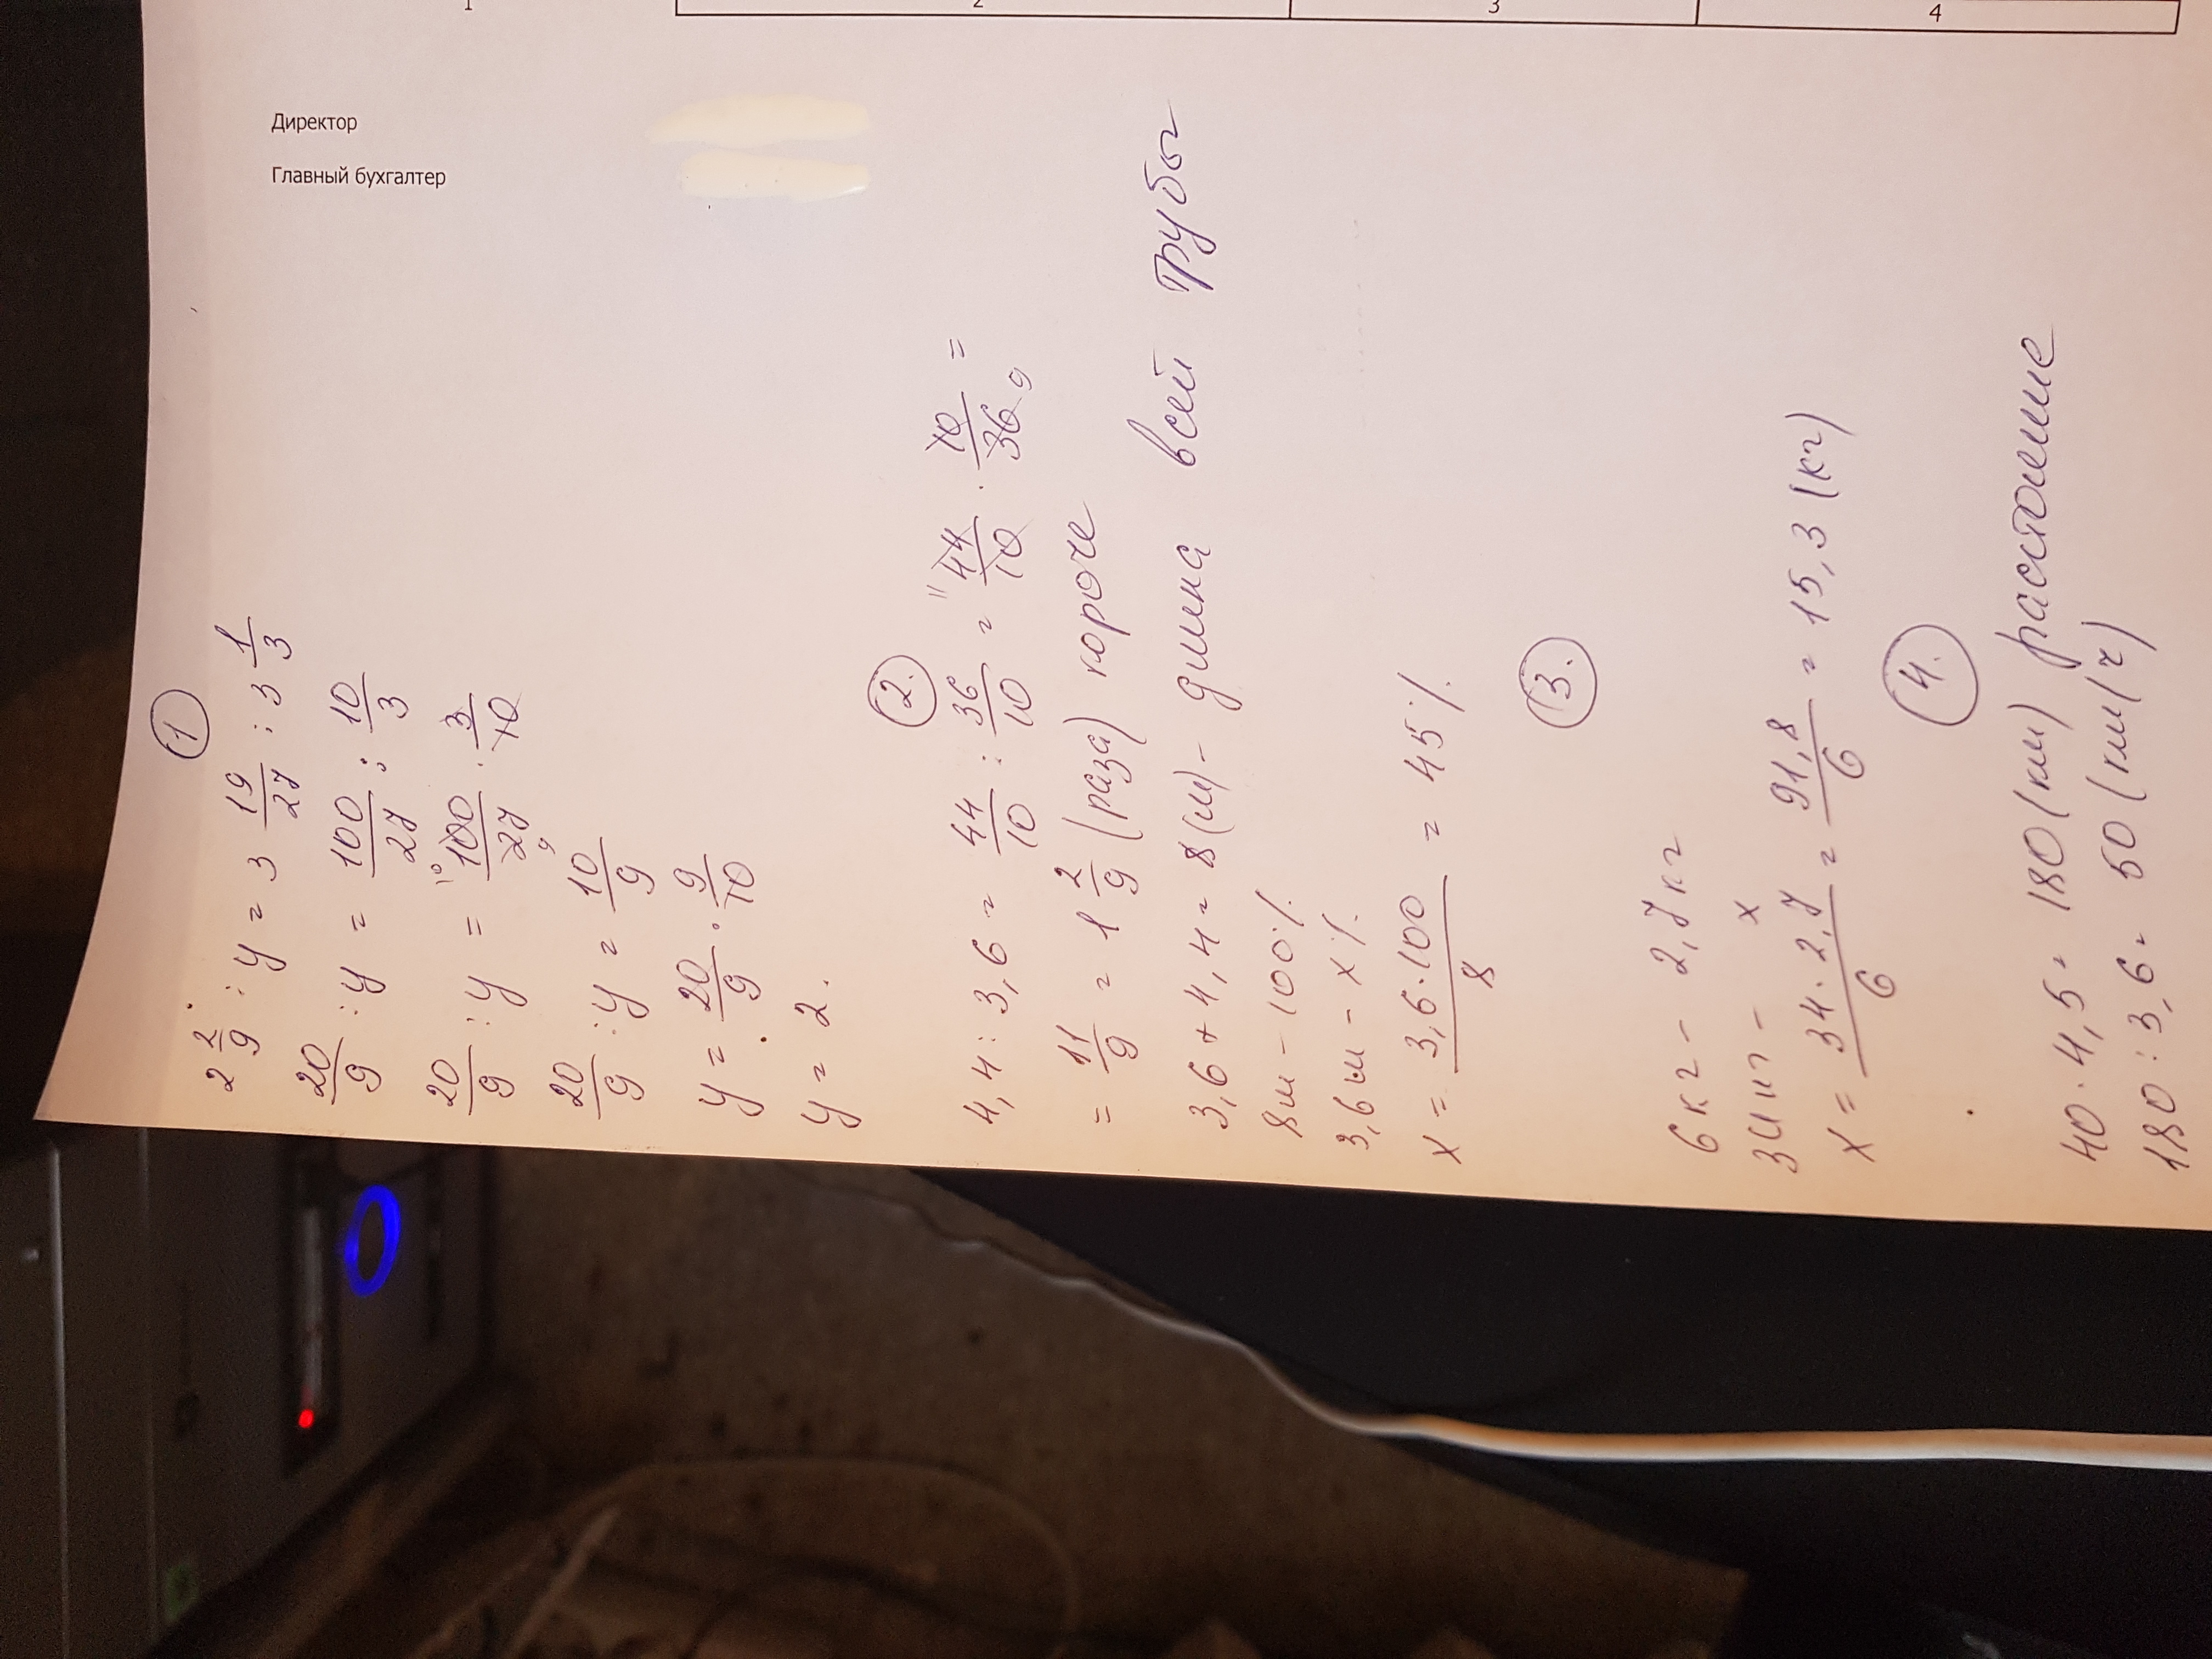 1 2 3 4
Директор
Главный бухгалтер
1
2 2/9 : y = 3 19/27 : 3 1/3
20/9 : y = 100/27 : 10/3
20/9 : y = 10 100/27 9 · 3/10
20/9 : y = 10/9
y = 20/9 · 9/10
y = 2.
2.
4,4 : 3,6 = 44/10 : 36/10 = 11 44/10 · 10/36 9 =
= 11/9 = 1 2/9 (раза) короче
3,6 + 4,4 = 8 (м) - длина всей трубы
8м - 100%
3,6м - x%
x = 3,6·100/8 = 45%
3.
6 кг - 2,7 кг
34 кг - x
x = 34·2,7/6 = 91,8/6 = 15,3 (кг)
4.
40·4,5 = 180 (км) расстояние
180 : 3,6 = 50 (км/ч)